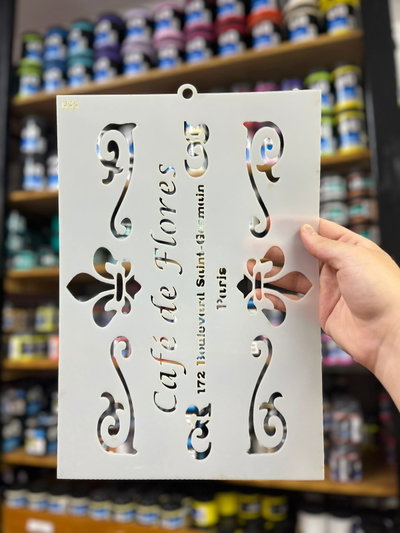 Café de Flores
172 Boulevard Saint-Germain
Paris